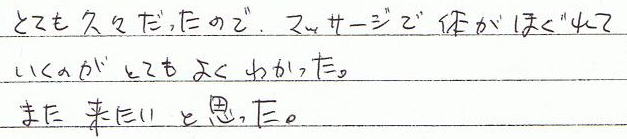 とても久々だったので、マッサージで体がほぐれて
いくのがとてもよくわかった。
また来たいと思った。